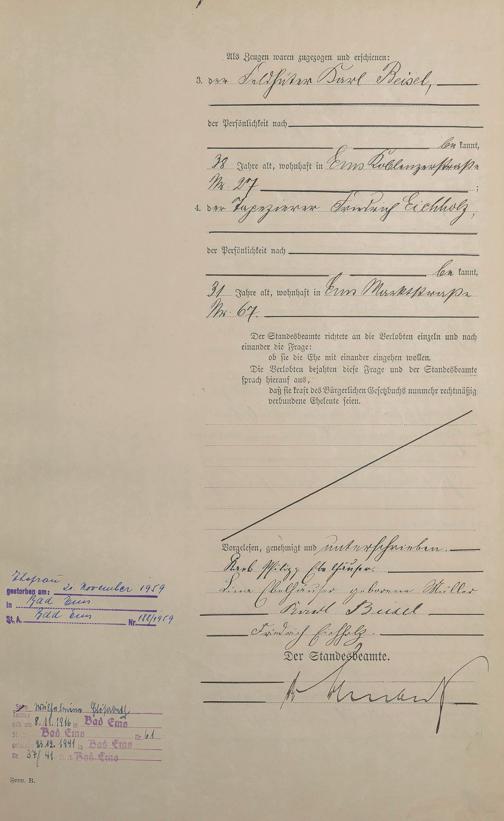 Als Zeugen waren zugezogen und erschienen:
3. der Feldhüter Karl Beisel,
der Persönlichkeit nach
bekannt,
38 Jahre alt, wohnhaft in Ems Koblenzerstraße
Nr. 27 ;
4. der Tapezierer Friedrich Eichholz,
der Persönlichkeit nach
bekannt,
31 Jahre alt, wohnhaft in Ems Marktstraße
Nr. 67.
Der Standesbeamte richtete an die Verlobten einzeln und nach
einander die Frage:
ob sie die Ehe mit einander eingehen wollen.
Die Verlobten bejahten diese Frage und der Standesbeamte
sprach hierauf aus,
daß sie kraft des Bürgerlichen Gesetzbuchs nunmehr rechtmäßig
verbundene Eheleute seien.
Vorgelesen, genehmigt und unterschrieben.
Philipp Ebelhäuser.
Lina Ebelhäuser geborene Müller
Karl Beisel
Friedrich Eichholz.
Der Standesbeamte.
Ehefrau
gestorben am: 20. November 1959
in Bad Ems
St. A. Bad Ems Nr. /1959
Wilhelmine Elisabeth
8.11.1916 in Bad Ems
Bad Ems Nr. 61
12.1941 in Bad Ems
Nr. 37/41 Bad Ems
Form. B.